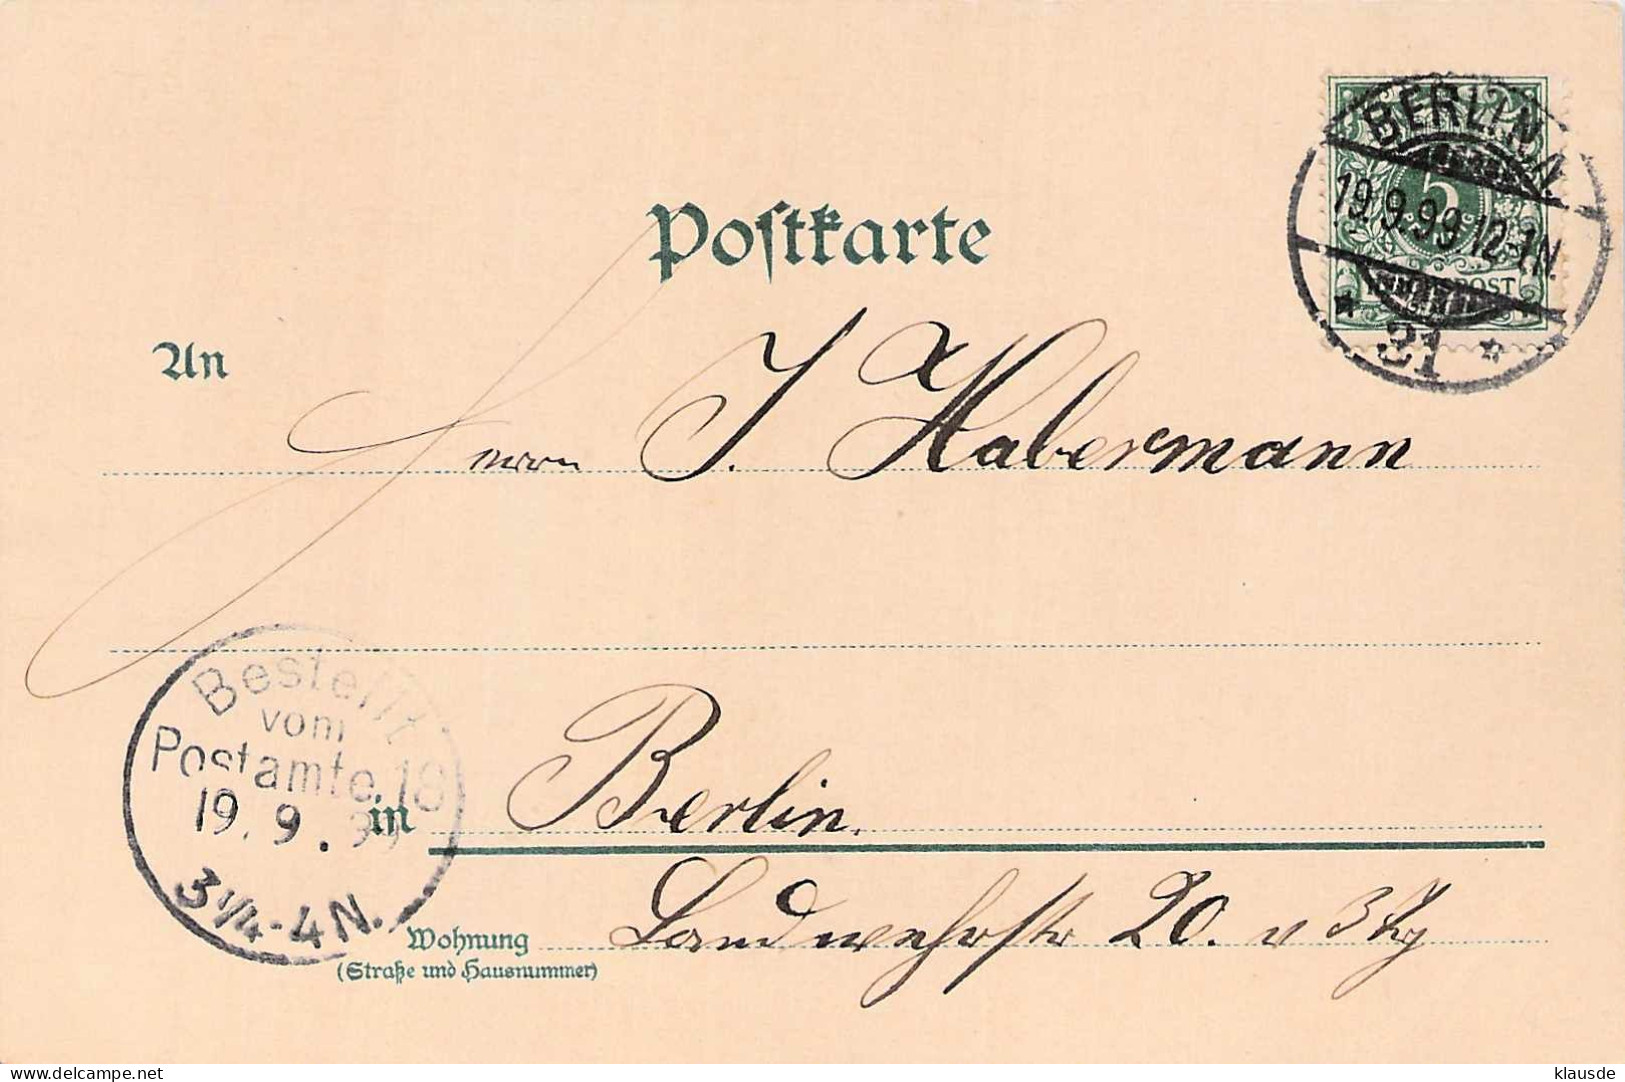 Postkarte
BERLIN
19.9.99.12-1N.
21
5
POST
An
Herrn J. Habermann
Bestellt
vom
Postamte 18
19.9.99
3¼-4N.
in Berlin.
Wohnung Landwehrstr 20. v 3
(Straße und Hausnummer)
delcampe.net
klausde